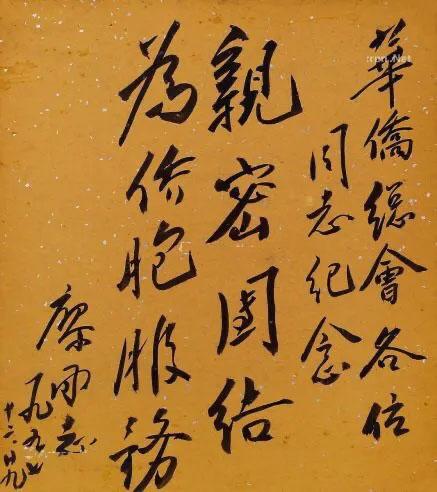 華僑總會各位
同志紀念
親密團結
為侨胞服務
廖承志